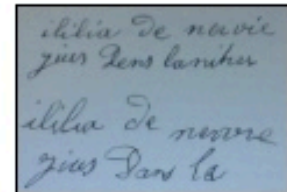 ililia de navie
gius Dens laniher
ililia de nevvre
gius Dans la